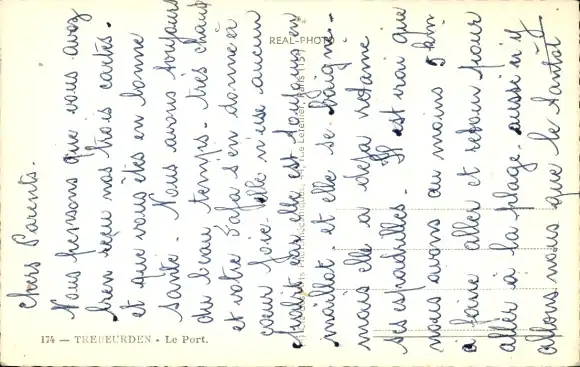 Chers Parents.
Nous pensons que vous avez
bien reçu nos trois cartes.
et que vous êtes en bonne
santé. Nous avons toujours
du beau temps. très chaud
et votre fafa s'en donne à
coeur joie. elle n'use aucun
car elle est toujours en
maillot. et elle se baigne.
mais elle a déjà
ses espadrilles. Il est vrai que
nous avons au moins 5 km
a faire aller et retour pour
aller à la plage. aussi n'y
allons nous que le tantôt
REAL-PHOTO
174 — TREBEURDEN - Le Port.